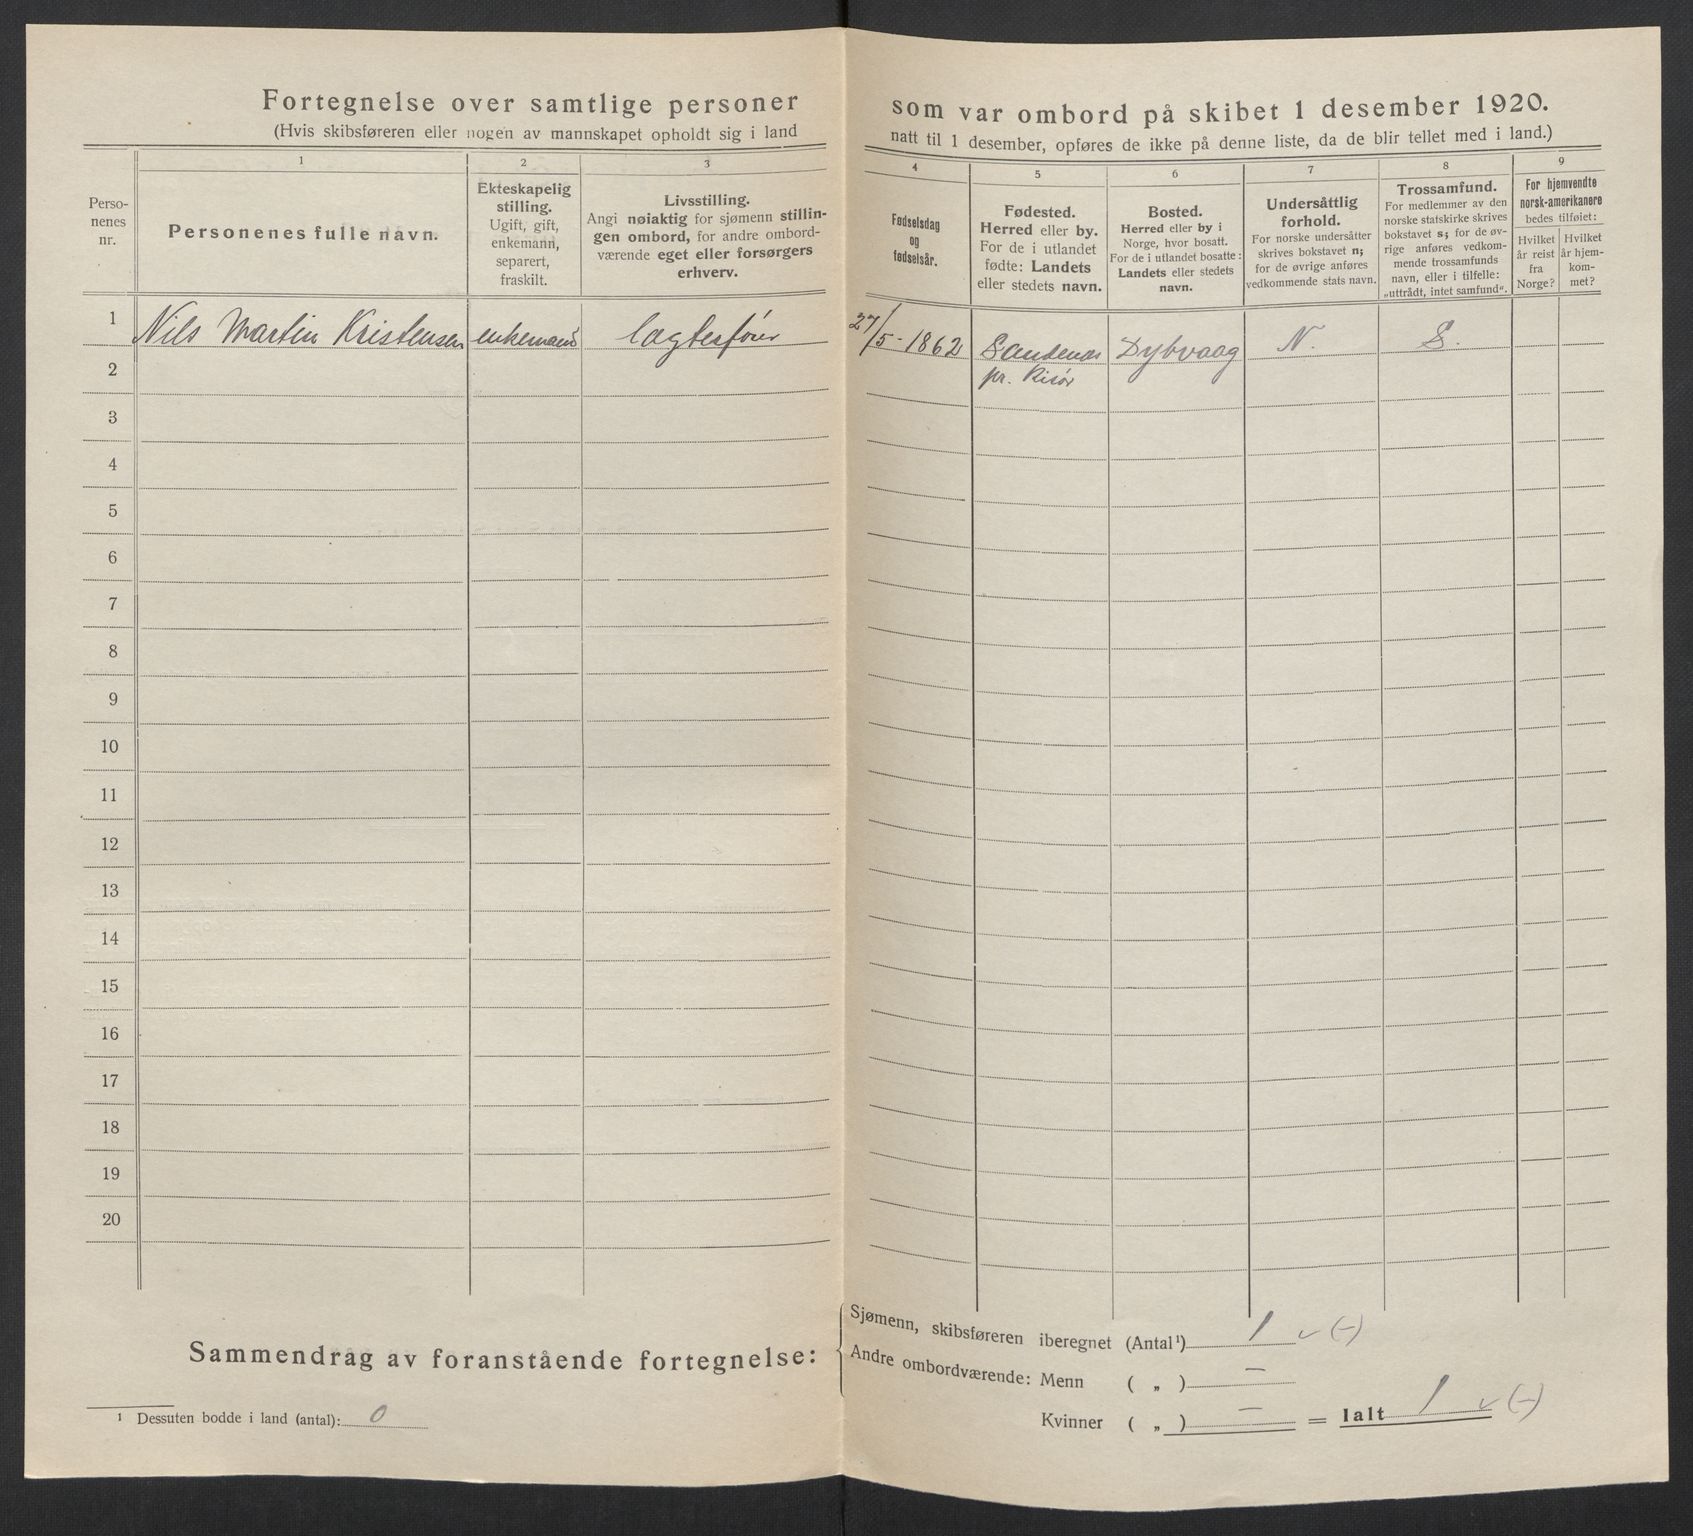 Fortegnelse over samtlige personer som var ombord på skibet 1 desember 1920.
(Hvis skibsføreren eller nogen av mannskapet opholdt sig i land natt til 1 desember, opføres de ikke på denne liste, da de blir tellet med i land.)
Perso-
nenes
nr.
1
Personenes fulle navn.
2
Ekteskapelig
stilling.
Ugift, gift,
enkemann,
separert,
fraskilt.
3
Livsstilling.
Angi nøiaktig for sjømenn stillin-
gen ombord, for andre ombord-
værende eget eller forsørgers
erhverv.
4
Fødselsdag
og
fødselsår.
5
Fødested.
Herred eller by.
For de i utlandet
fødte: Landets
eller stedets navn.
6
Bosted.
Herred eller by i
Norge, hvor bosatt.
For de i utlandet bosatte:
Landets eller stedets
navn.
7
Undersåttlig
forhold.
For norske undersåtter
skrives bokstavet n;
for de øvrige anføres
vedkommende stats navn.
8
Trossamfund.
For medlemmer av den
norske statskirke skrives
bokstavet s; for de øv-
rige anføres vedkom-
mende trossamfunds
navn, eller i tilfelle:
„uttrådt, intet samfund“.
9
For hjemvendte
norsk-amerikanere
bedes tilføiet:
Hvilket
år reist
fra
Norge?
Hvilket
år hjem-
kom-
met?
1 Nils Martin Kristensen enkemand lægterfører 27/5-1862 Sandenes Dybvaag N. S.
pr. Risør
2
3
4
5
6
7
8
9
10
11
12
13
14
15
16
17
18
19
20
Sammendrag av foranstående fortegnelse:
Sjømenn, skibsføreren iberegnet (Antal¹) 1 v (-)
Andre ombordværende: Menn ( „ ) —
Kvinner ( „ ) — = Ialt 1 v (-)
¹ Dessuten bodde i land (antal): 0